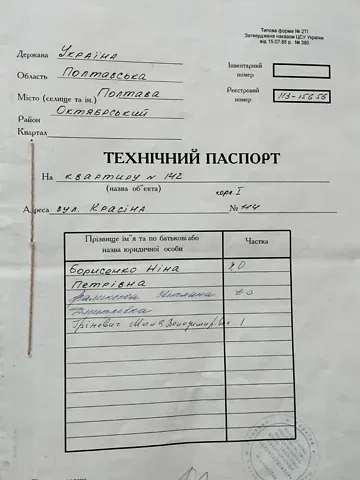 Типова форма № 2П
Затверджена наказом ЦСУ України
від 15.07.85 р. № 380
Держава Україна
Область Полтавська
Місто (селище та ін.) Полтава
Район Октябрський
Квартал
Інвентарний номер
Реєстровий номер 113-156.56
ТЕХНІЧНИЙ ПАСПОРТ
На квартиру N 142
(назва об'єкта) корп. I
Адреса вул. Красіна № 44
Прізвище ім'я та по батькові або назва юридичної особи
Частка
Борисенко Ніна
Петрівна
Гріневич Майя Володимирівна 1